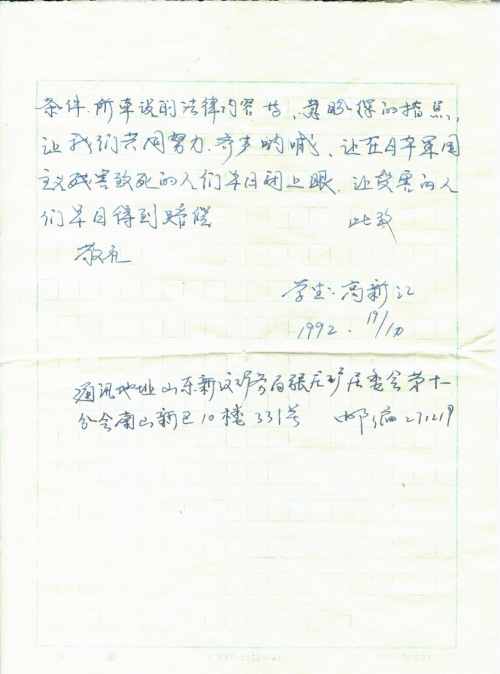 条件.所牵设的法律内容等、万盼您的指点,
让我们共同努力.齐声呐喊、让在日本军国
主义残害致死的人们早日闭上眼.让受害的人
们早日得到赔偿 此致
敬礼
学生:高新江
1992. 19/10
通讯地址山东新汶矿务局张庄矿居委会第十一
分会南山新区10楼331号 邮编271219